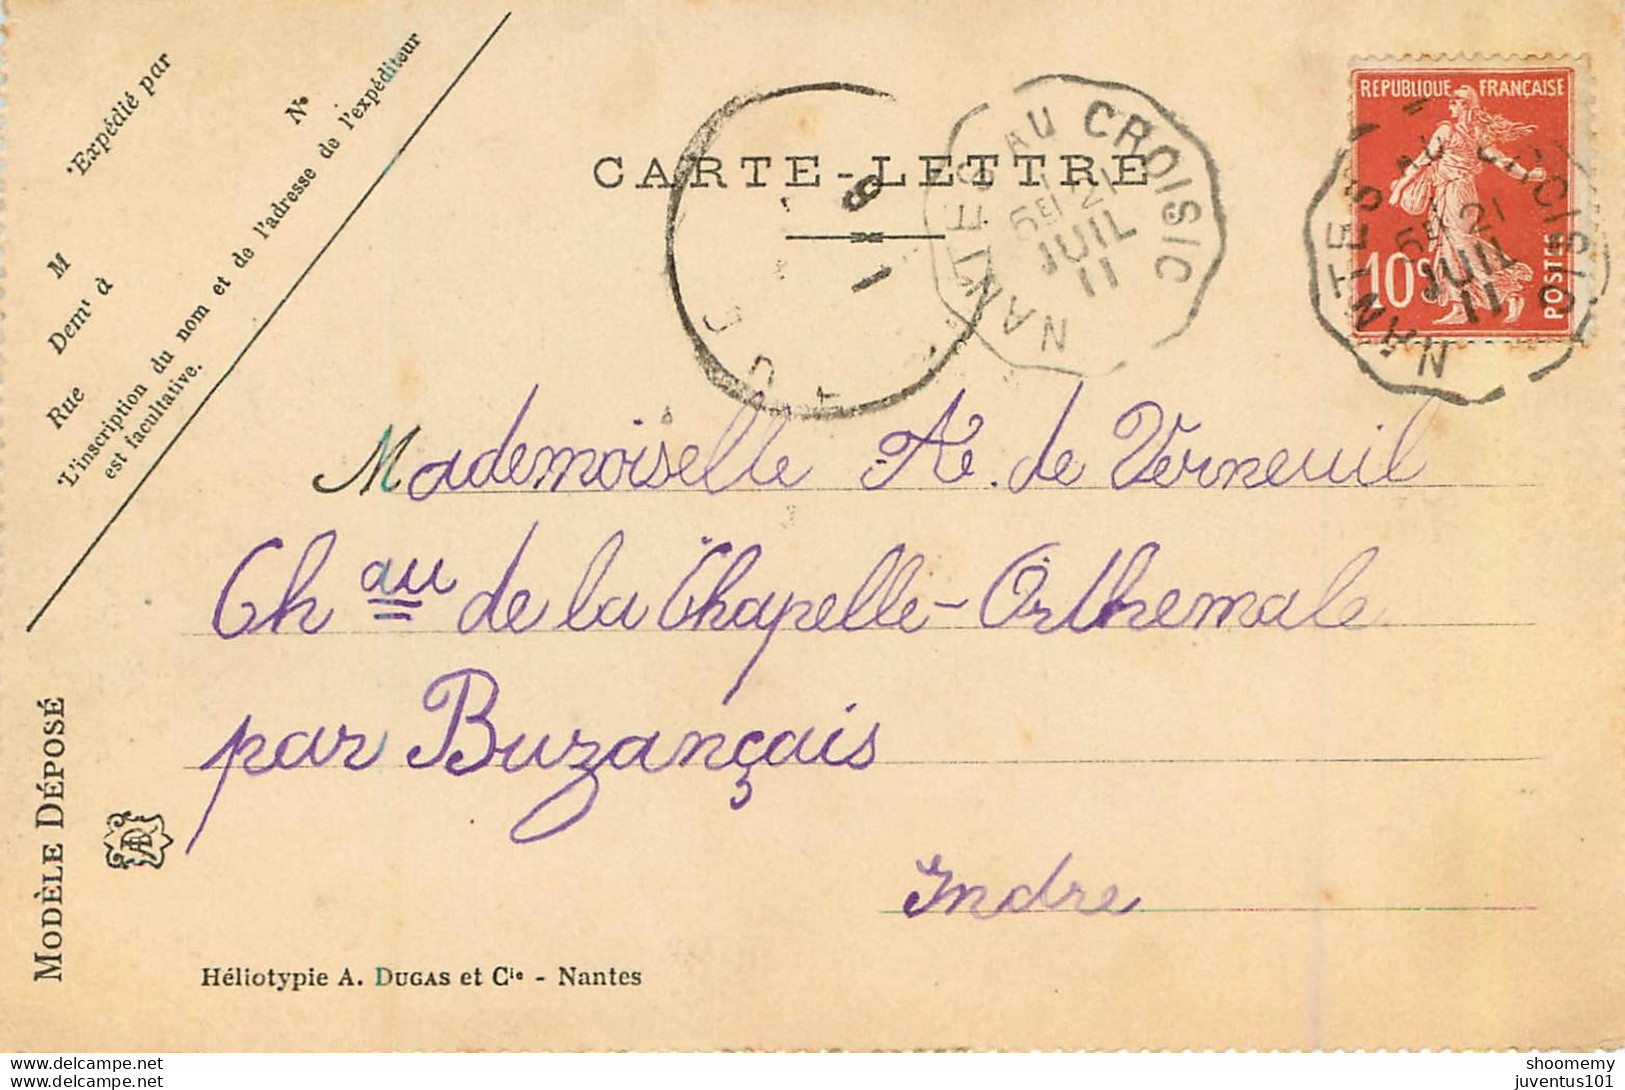 'Expédié par
N°
M
Dem' à
Rue
'L'inscription du nom et de l'adresse de l'expéditeur
est facultative.
CARTE-LETTRE
NANTES AU CROISIC
21
JUIL
11
REPUBLIQUE FRANÇAISE
10c
POSTES
NANTES AU CROISIC
21
JUIL
11
Mademoiselle A. de Verneuil
Chau de la Chapelle-Orthemale
par Buzançais
Indre
MODÈLE DÉPOSÉ
Héliotypie A. DUGAS et Cie - Nantes
www.delcampe.net
shoomemy
juventus101